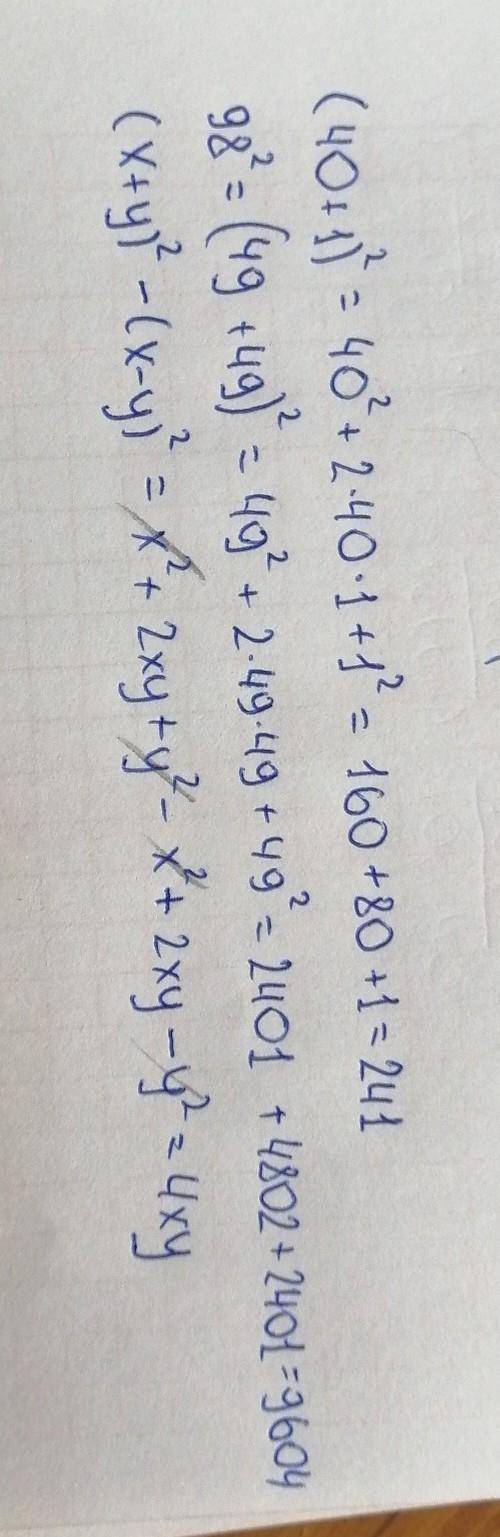 (40+1)² = 40² + 2·40·1 + 1² = 160 + 80 + 1 = 241
98² = (49 + 49)² = 49² + 2·49·49 + 49² = 2401 + 4802 + 2401 = 9604
(x+y)² - (x-y)² = x² + 2xy + y² - x² + 2xy - y² = 4xy